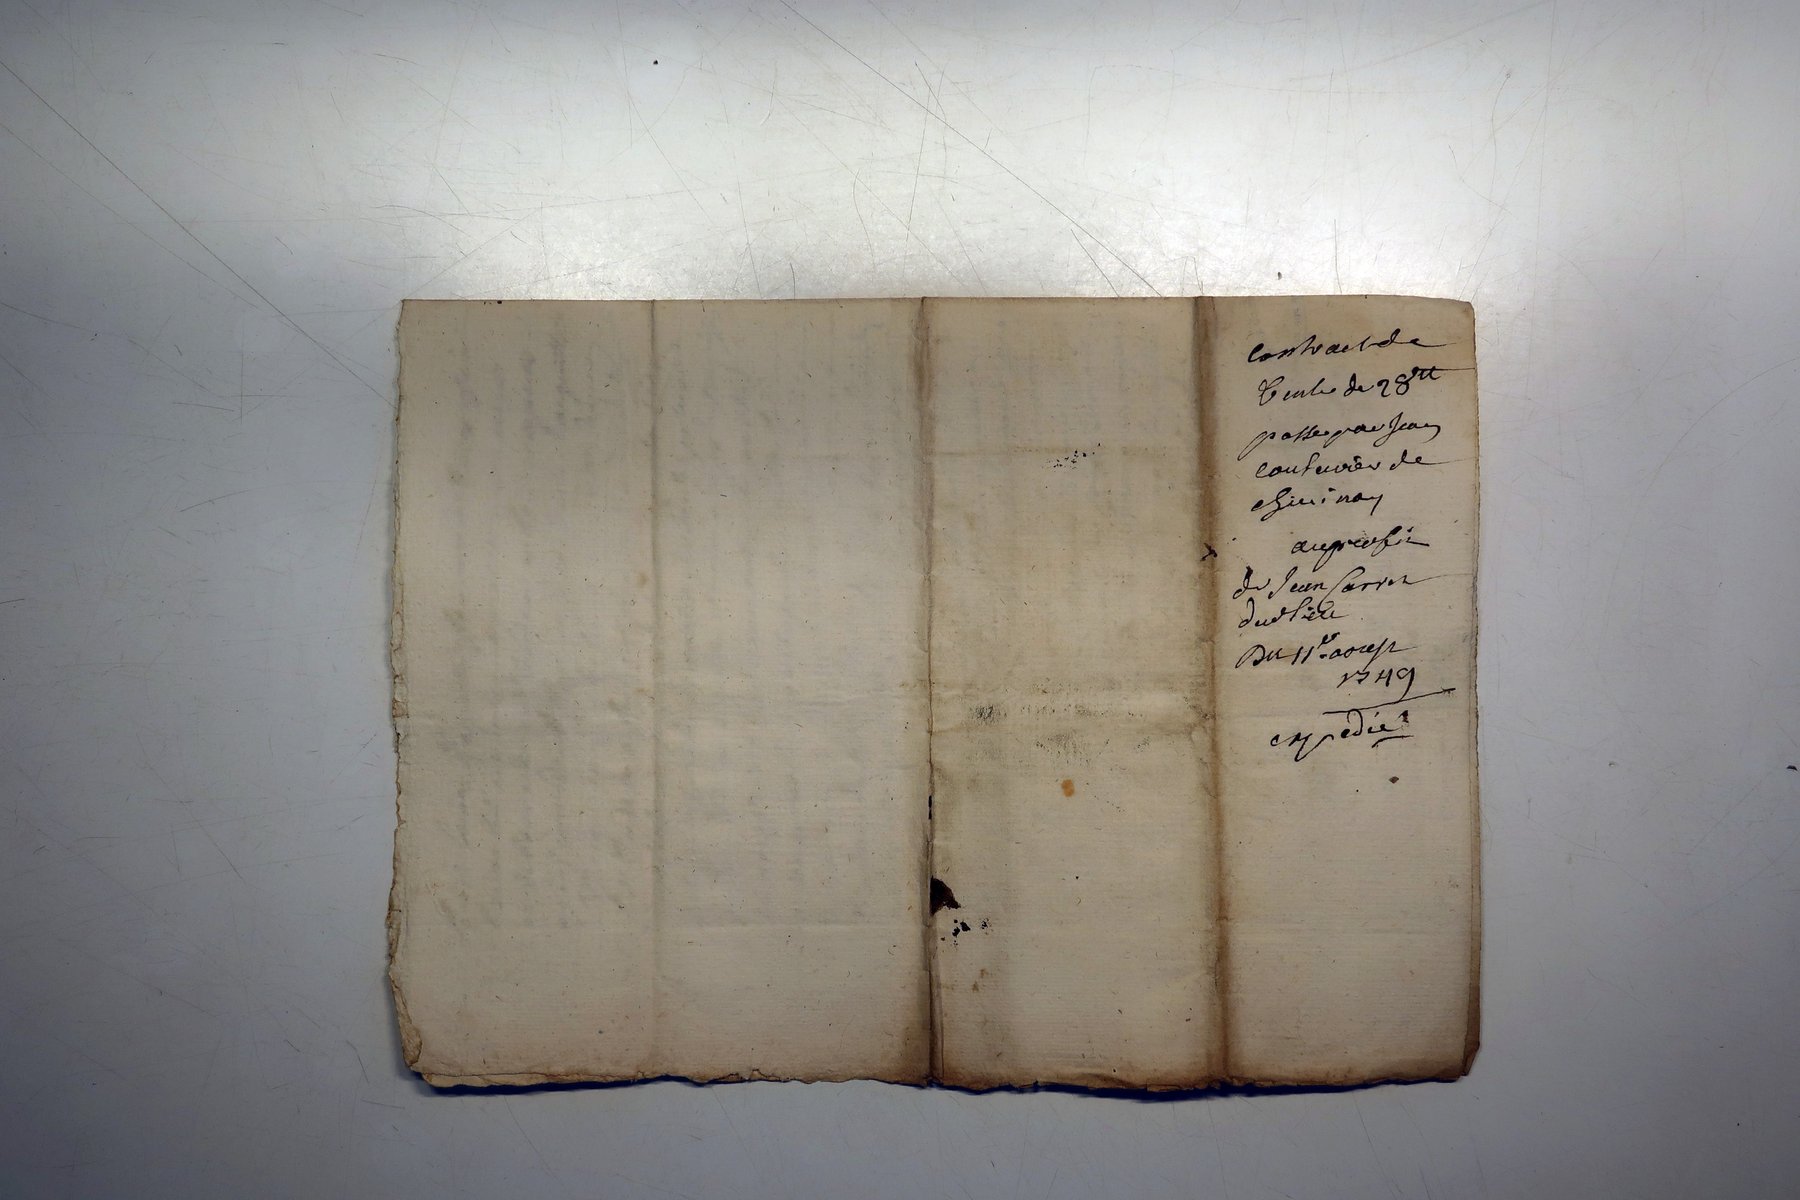 Contract de
Vente de 28 tt
passé par Jean
couturier de
au profit
de Jean Carret
dud lieu
Du 11e aoust
1749
expedié